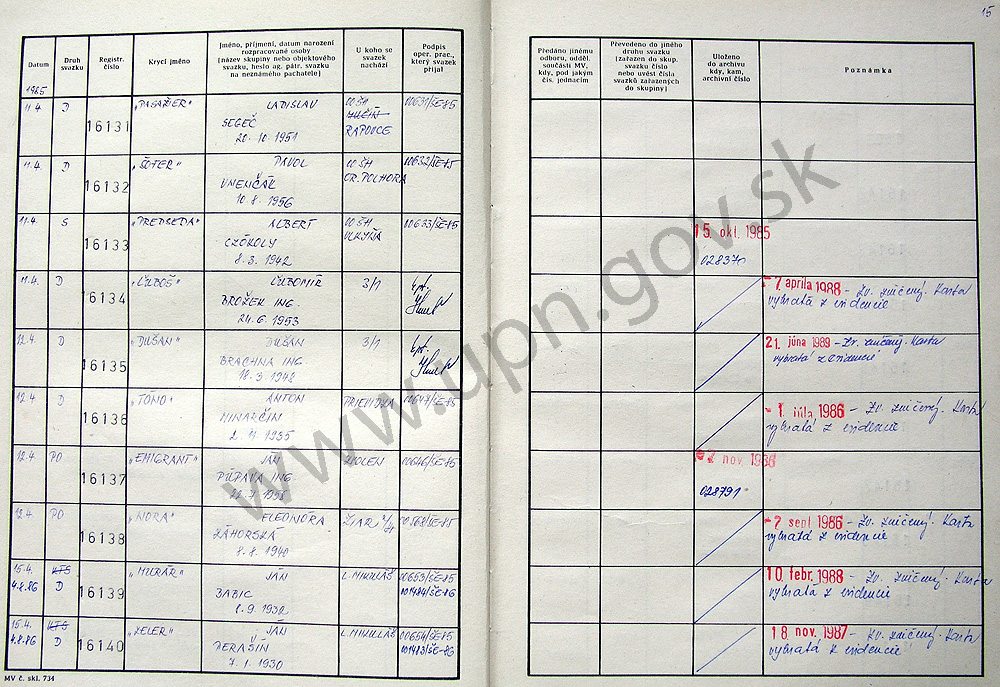 15
Datum
Druh svazku
Registr. číslo
Krycí jméno
Jméno, příjmení, datum narození
rozpracované osoby
(název skupiny nebo objektového
svazku, heslo ag. pátr. svazku
na neznámého pachatele)
U koho se
svazek
nachází
Podpis
oper. prac.,
který svazek
přijal
Předáno jinému
odboru, odděl.
součásti MV,
kdy, pod jakým
čís. jednacím
Převedeno do jiného
druhu svazku
(zařazen do skup.
svazku číslo
nebo uvést čísla
svazků zařazených
do skupiny)
Uloženo
do archivu
kdy, kam,
archivní číslo
Poznámka
1985
11.4. D 16131 „PASAŽIER" LADISLAV
SEGEČ
20. 10. 1951
OO ŠH
RAPOVCE
00631/ŠE-85
11.4. D 16132 „ŠOFER" PAVOL
VNENČÁK
10. 8. 1956
OO ŠH
OR. POLHORA
00632/ŠE-85
11.4. S 16133 „PREDSEDA" ALBERT
CZÓKOLY
8. 3. 1942
OO ŠH
VLKYŇA
00633/ŠE-85
15. okt. 1985
028370
11.4. D 16134 „ĽUBOŠ" ĽUBOMÍR
BROŽEK ING.
24. 6. 1953
3/1
- 7 apríla 1988 - Zv. zničený. Karta
vybratá z evidencie
12.4. D 16135 „DUŠAN" DUŠAN
BRACHNA ING.
3/1
21. júna 1989 - Zv. zničený. Karta
vybratá z evidencie
12.4. D 16136 „TÓNO" ANTON
MINARČIN
1935
PRIEVIDZA
00647/ŠE-85
- 1. júla 1986 - Zv. zničený. Karta
vybratá z evidencie
12.4. PO 16137 „EMIGRANT" JÁN
PÚPAVA ING.
ZVOLEN
00646/ŠE-85
nov. 1986
028791
12.4. PO 16138 „NORA" ELEONÓRA
ZÁHORSKÁ
8. 8. 1940
ŽIAR n/H
00568/ŠE-85
- 2 sept 1986 - Zv. zničený. Karta
vybratá z evidencie
15.4. KTS
4.8.86 D 16139 „MURÁR" JÁN
BABIC
8. 9. 1932
L. MIKULÁŠ
00653/ŠE-85
001484/ŠE-86
10. febr. 1988 - Zv. zničený. Karta
vybratá z evidencie
15.4. KTS
4.8.86 D 16140 „ZELER" JÁN
DERAŠIN
7. 1. 1930
L. MIKULÁŠ
00654/ŠE-85
001483/ŠE-86
18. nov. 1987 - Zv. zničený. Karta
vybratá z evidencie
MV č. skl. 734
www.upn.gov.sk